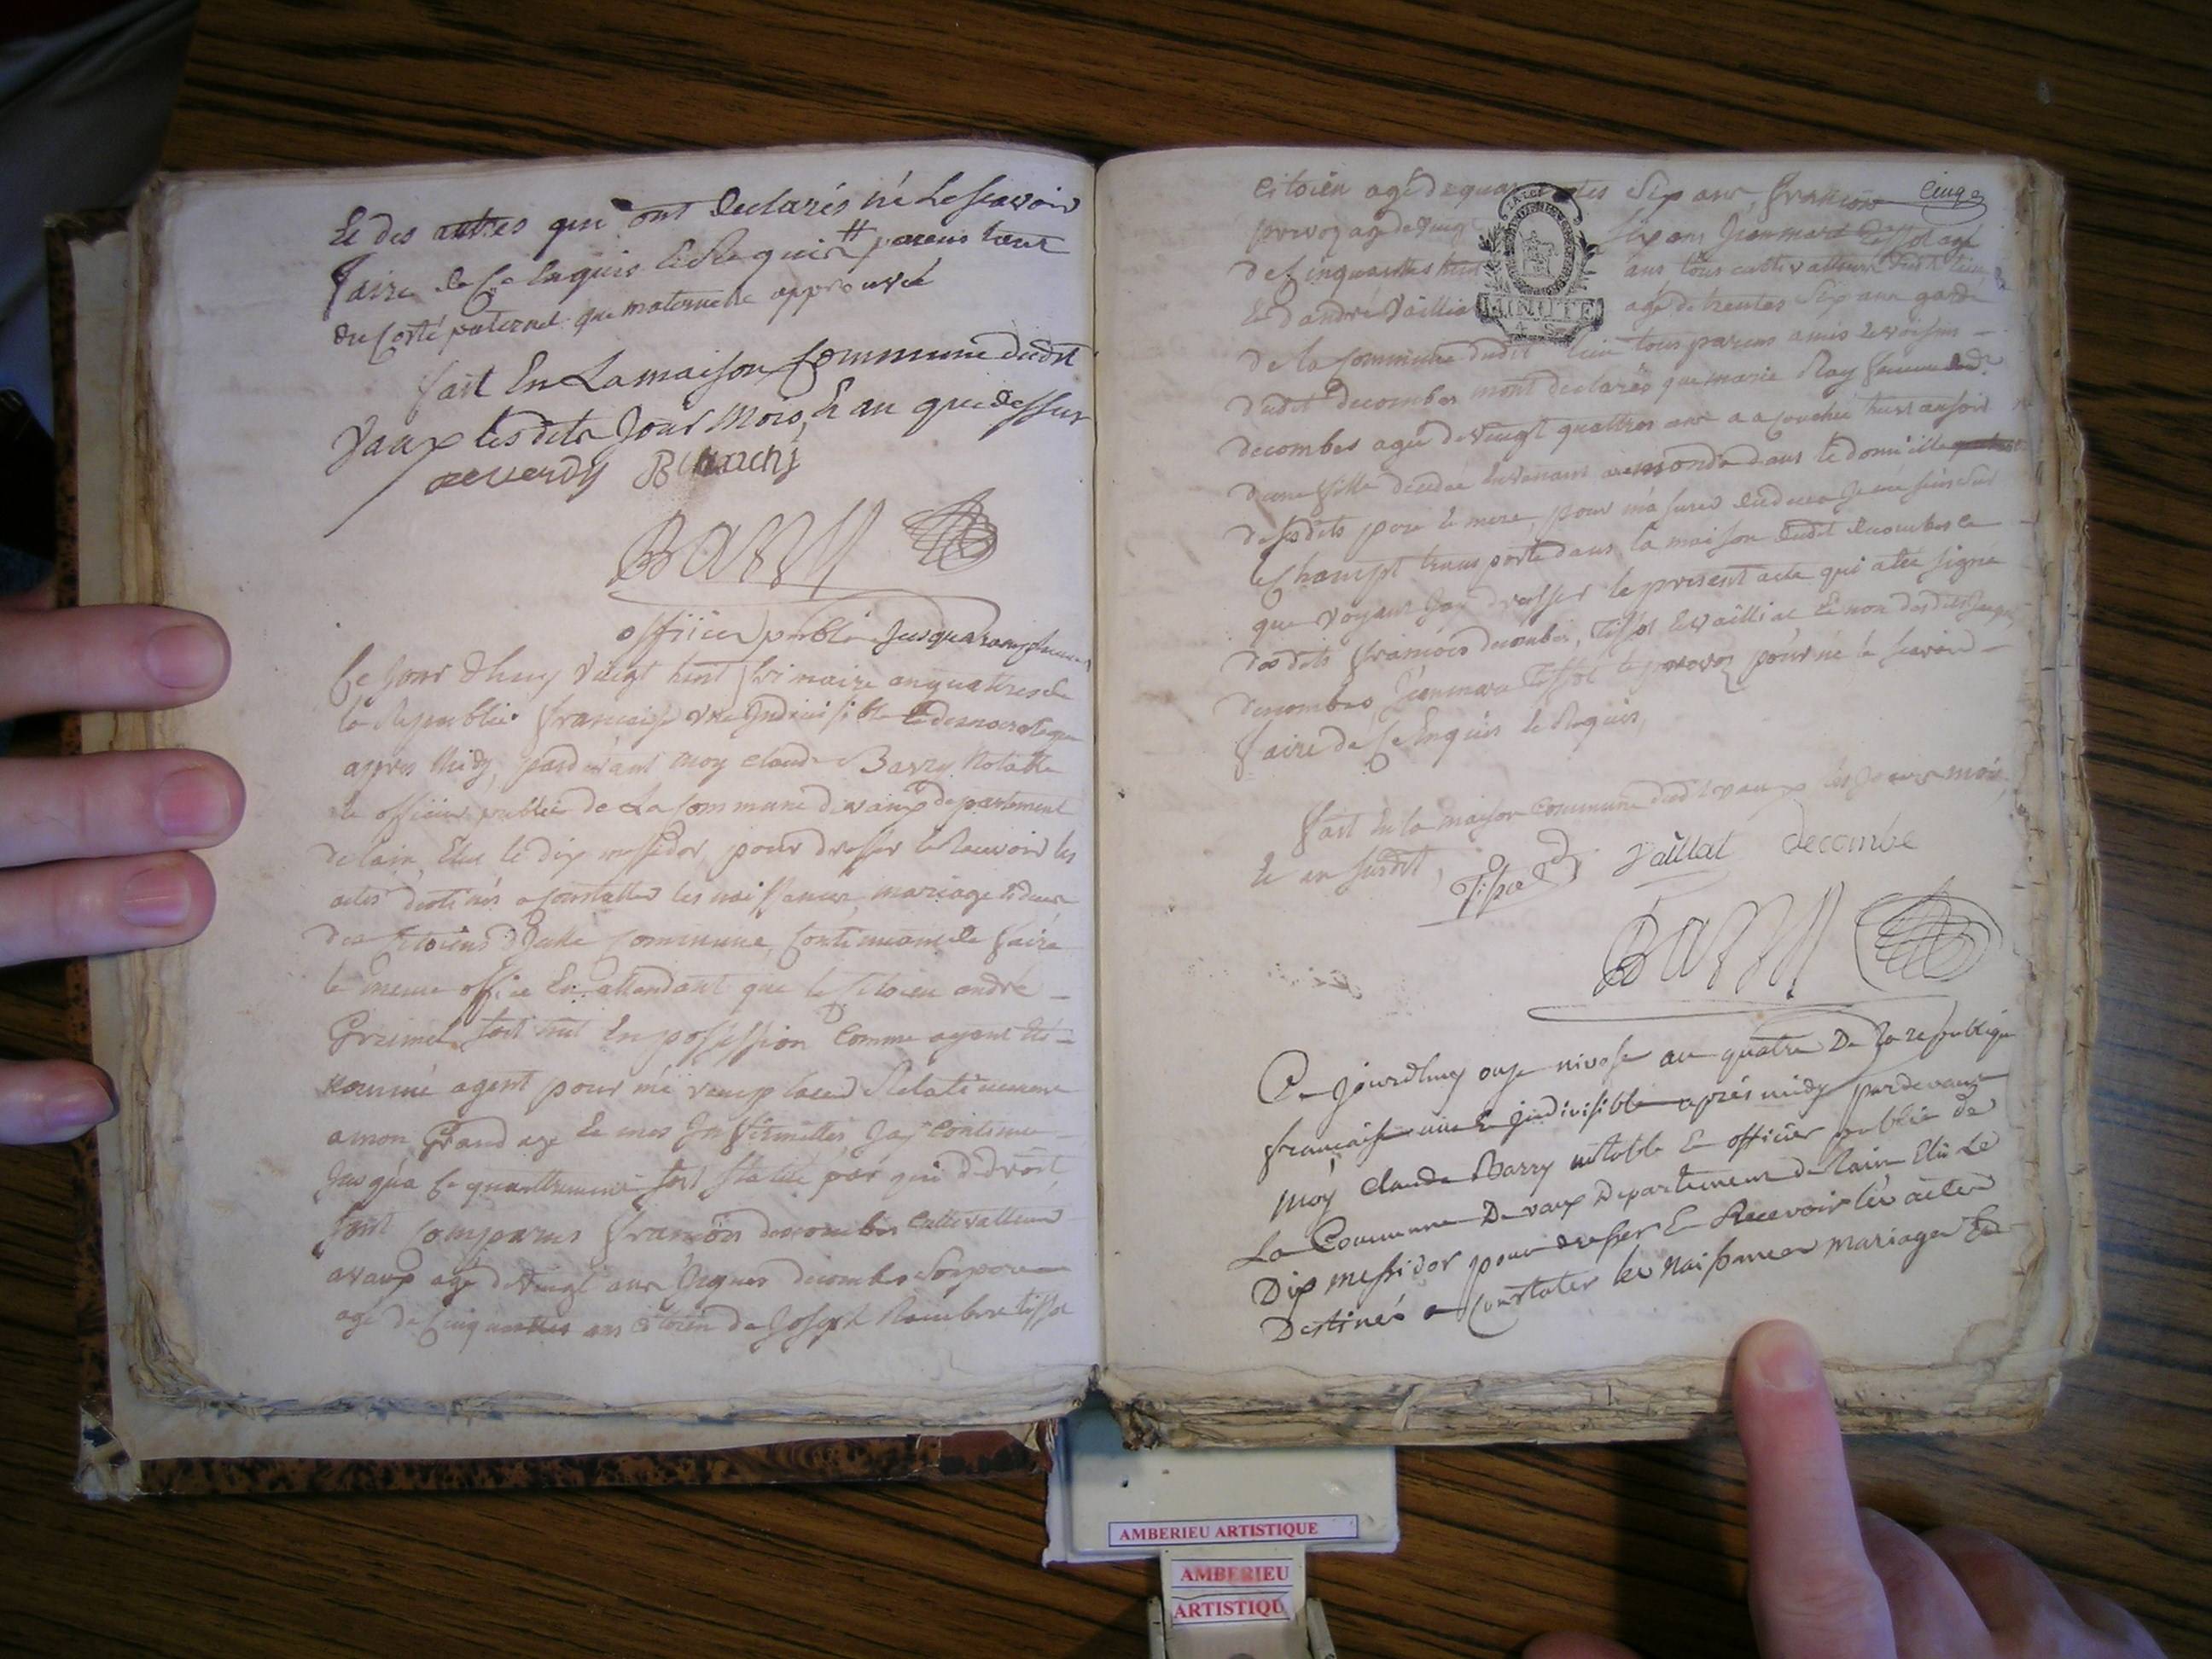 Et des autres qui ont declarés né Le scavoir
faire de Ce Enquis Et Requis # parens tant
du Corté paternel que maternelle approuvé
fait En La maison Commune dudit
Vaux lesdits Jour Mois et an que dessus
reverdy Blanchi
Barry
officier publi Jusqua ramplassem
Ce Jour dhuy Vingt huit frimaire an quattres de
la Republic francaise une Indivisible et democratique
appres Midy, pardevant moy claude Barry Notable
et officier public de La Commune de vaux departement
de lain, Elu le dix messidor pour dresser et Recevoir les
actes destinés a Constatter les naissances, mariage et deces
des Citoiens de Jcelle Commune, Continuant de faire
le meme office En attendant que le Citoien andré
Greimel soit mit En possession Comme ayant Eté
nommé agent pour mé remplacer Relativement
a mon Grand age et mes Infirmittes, Jay Continué
Jusqua Ce quauttrement soit statué par qui de droit,
sont Comparus francois decombes cultivatteur
a vaux agé de vingt ans Jacques decombes son pere
agé de Cinquantes ans citoien de Joseph Rambert tissot
Citoien agé de quarantes Six ans, francois Cinq
prevoz agé de Vingt Six ans Jeanmard tissot agé
de Cinquantes huit ans tous cultivatteurs dudit lieu
Et d andré Vailliat agé de trentes Six ans garde
de la Commune dudit lieu tous parens amis et voisins
dudit decombes mont declarés que marie Ray femme dudt
decombes agée de Vingt quattres ans a accouchée hier au soir
dune fille decedée En venant au monde dans le domicille
desdits pere et mere, pour m'assurer du deces Je me suis sur
le Champt transporté dans la maison dudit decombes Ce
que voyant Jay dresser le present acte qui a été signé
desdits francois decombes, Tissot et vailliat Et non desdits Jacques
decombes Jeanmard Tissot et prevoz pour né le scavoir
faire de Ce Enquis et Requis,
fait En la maison Commune dudit vaux les Jours mois
Et an susdit, Tissot Vaillat decombe
Barry
Ce Jourdhuy onze nivose an quatre De La republique
francaise une et Jndivisible apres midy pardevant
Moy Claude Barry notable Et officier public de
La Commune De vaux Departement de Lain Elu Le
Dix messidor pour dresser Et Recevoir les actes
Destinés a Constater les Naissances Mariages Et
MINUTE
AMBERIEU ARTISTIQUE
AMBERIEU
ARTISTIQU